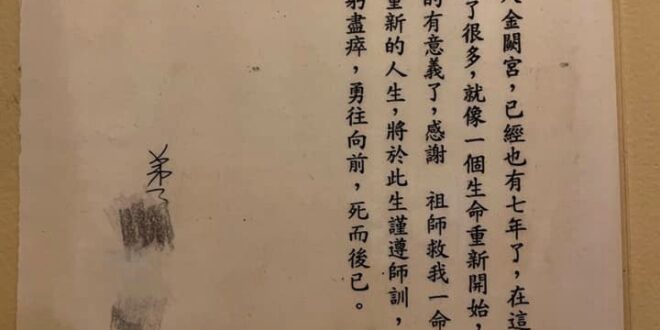 金闕宮，已經也有七年了，在這
了很多，就像一個生命重新開始，
的有意義了，感謝　祖師救我一命
重新的人生，將於此生謹遵師訓，
盡瘁，勇往向前，死而後已。
弟